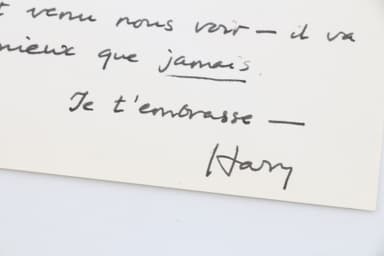 t venu nous voir — il va
mieux que jamais.
Je t'embrasse —
Hary